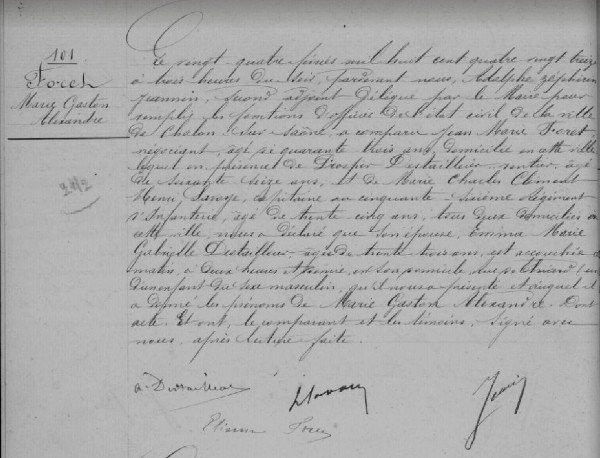 101
Foret
Marie Gaston
Alexandre
Le vingt-quatre mil huit cent quatre vingt treize
à trois heures du soir, pardevant nous, Adolphe Zéphirin
Jeannin, second adjoint délégué par le Maire pour
remplir les fonctions d'officier de l'état civil de la ville
de Chalon-sur-Saône, a comparu Jean Marie Foret,
négociant, âgé de quarante trois ans, domicilié en cette ville
lequel en présence de Prosper Destailleur, rentier, âgé
de soixante seize ans, et de Marie Charles Clément
Henri capitaine au cinquante-sixième régiment
d'Infanterie, âgé de trente cinq ans, tous deux domiciliés en
cette ville, nous a déclaré que son épouse, Emma Marie
Gabrielle Destailleur, âgée de trente trois ans, est accouchée ce
matin, à deux heures et demie, en son domicile, rue
d'un enfant du sexe masculin, qu'il nous a présenté et auquel il
a donné les prénoms de Marie Gaston Alexandre. Dont
acte. Et ont, le comparant et les témoins, signé avec
nous, après lecture faite.
Destailleur